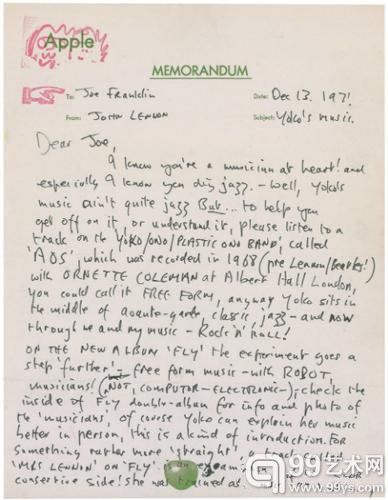 Apple
MEMORANDUM
To: Joe Franklin Date: Dec 13. 1971
From: John Lennon Subject: Yoko's music.
Dear Joe,
I know you're a musician at heart! and
especially I know you dig jazz. - Well, Yoko's
music ain't quite jazz But... to help you
get off on it, or understand it, please listen to a
track on the 'YOKO/ONO/PLASTIC ONO BAND', called
'AOS', which was recorded in 1968 (pre Lennon/Beatles!)
with ORNETTE COLEMAN at Albert Hall London,
you could call it FREE FORM, anyway Yoko sits in
the middle of avante-garde, classic, jazz - and now
through me and my music - Rock 'n' Roll!
ON THE NEW ALBUM 'FLY' the experiment goes a
step 'further' - free form music - with ROBOT,
musicians! (NOT, COMPUTOR-ELECTRONIC-); check the
inside of FLY double-album for info and photo of
the 'musicians', of course Yoko can explain her music
better in person, this is a kind of introduction. For
something rather more 'straight', a track called
'MRS LENNON' on 'FLY'
side! She was trained as
99艺术网
www.99ys.com